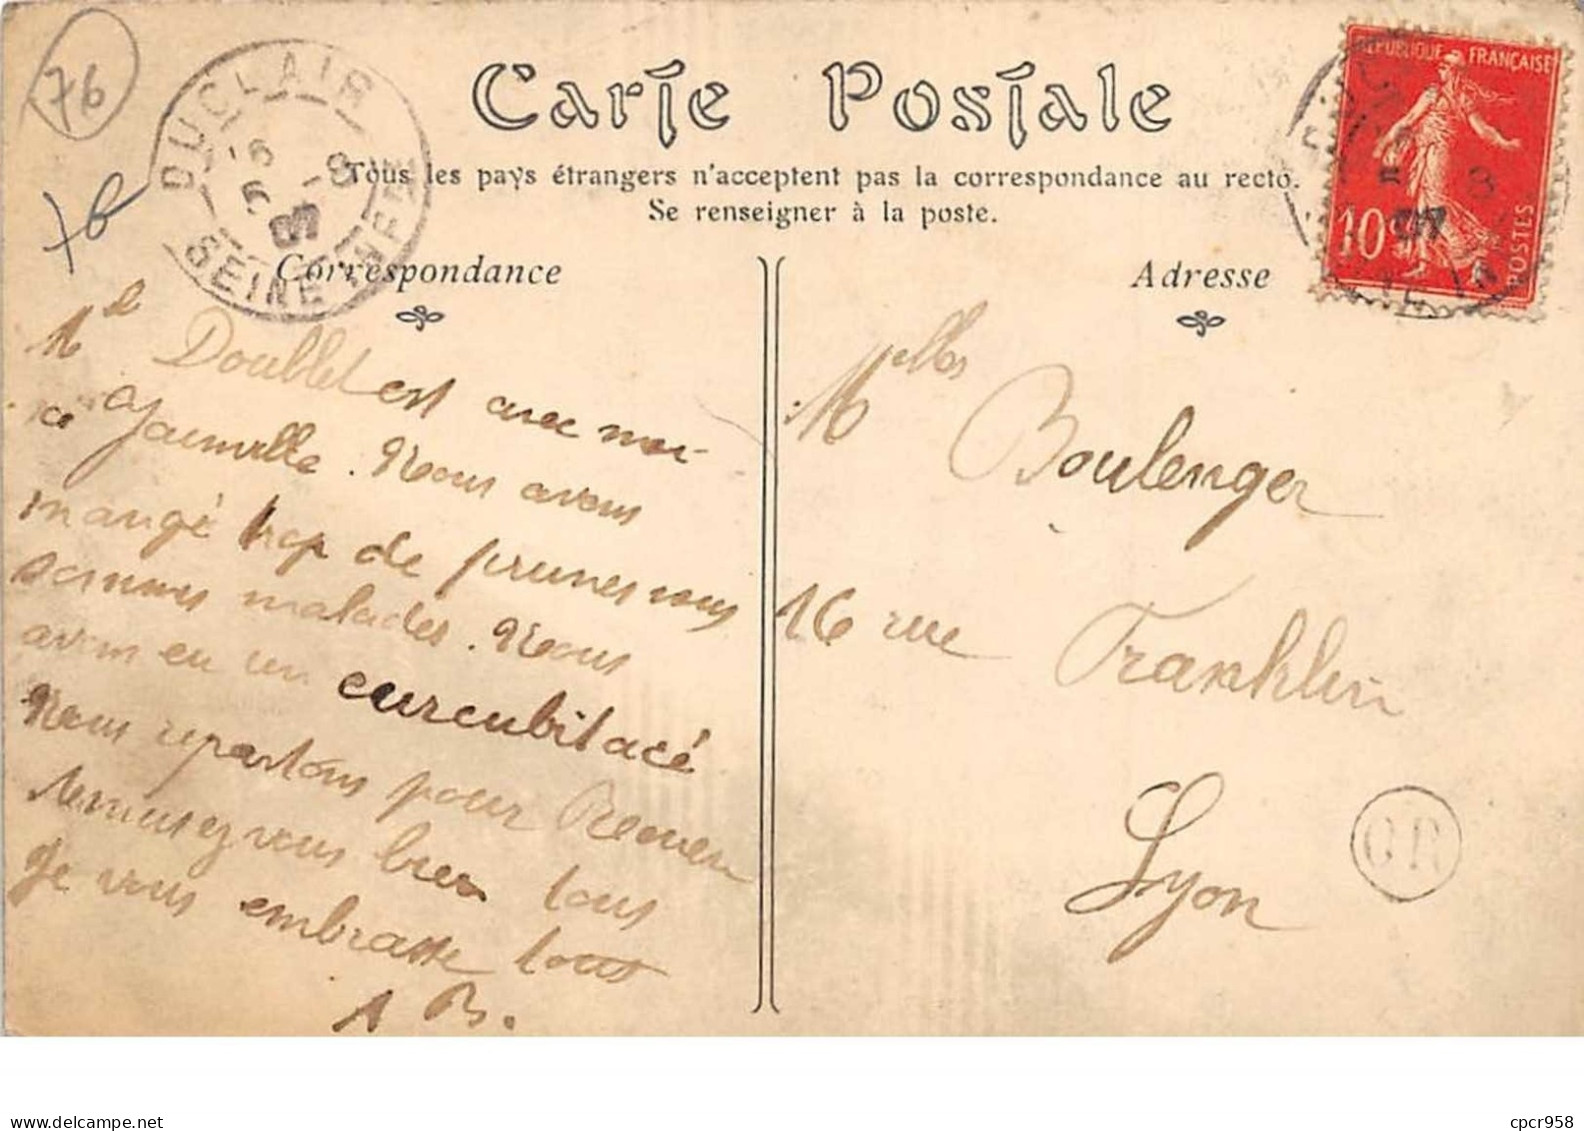 76
76
DUCLAIR
SEINE INFRE
Carte Postale
Tous les pays étrangers n'acceptent pas la correspondance au recto.
Se renseigner à la poste.
RÉPUBLIQUE FRANÇAISE
10
POSTES
Correspondance
Mel Doublet est avec moi
a Yainville. Nous avons
mangé trop de prunes nous
sommes malades. Nous
avons eu un curcubitacé
Nous repartons pour Rouen
Remuez vous bien tous
Je vous embrasse tous
A B.
Adresse
Melles Boulenger
16 rue Franklin
Lyon
OR
cpcr958